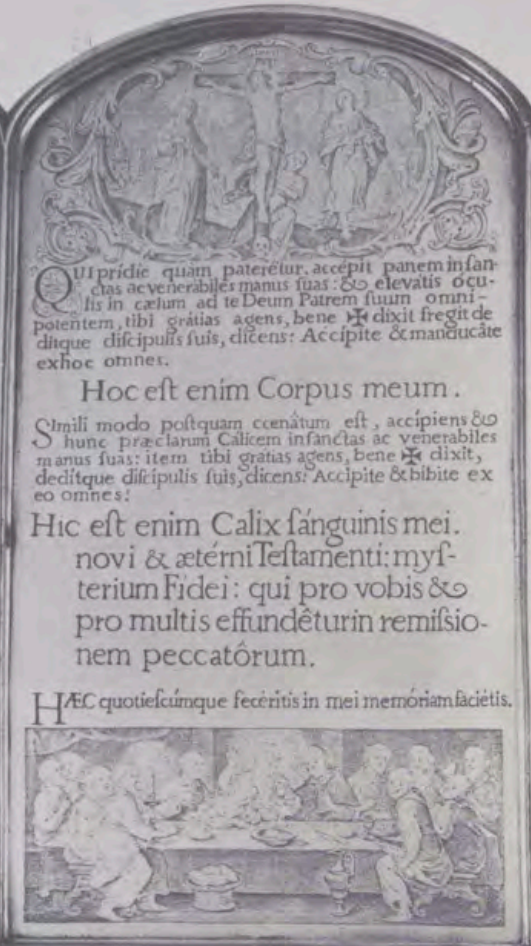 QUI pridie quàm paterétur, accépit panem in san-
ctas ac venerábiles manus suas: & elevatis ócu-
lis in cælum ad te Deum Patrem suum omni-
potentem, tibi grátias agens, bene ✠ dixit fregit de
ditque discipulis suis, dicens: Accipite & manducáte
ex hoc omnes.
Hoc est enim Corpus meum.
SImili modo postquam cœnátum est, accípiens &
hunc præclarum Cálicem in sanctas ac venerabiles
manus suas: item tibi gratias agens, bene ✠ dixit,
deditque discipulis suis, dicens: Accipite & bibite ex
eo omnes:
Hic est enim Calix sánguinis mei.
novi & ætérni Testamenti: mys-
terium Fidei: qui pro vobis &
pro multis effundêtur in remissio-
nem peccatôrum.
HÆC quotiescúmque fecéritis in mei memóriam faciétis.